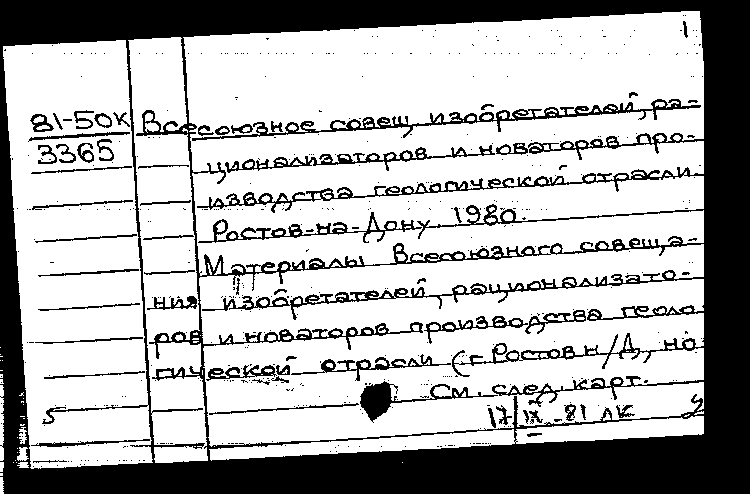 1
81-50к Всесоюзное совещ. изобретателей, ра-
3365 ционализаторов и новаторов про-
изводства геологической отрасли.
Ростов-на-Дону. 1980.
Материалы Всесоюзного совеща-
ния изобретателей, рационализато-
ров и новаторов производства геоло
гической отрасли (г. Ростов н/Д, но
См. след. карт.
5 17/IX-81 ЛК